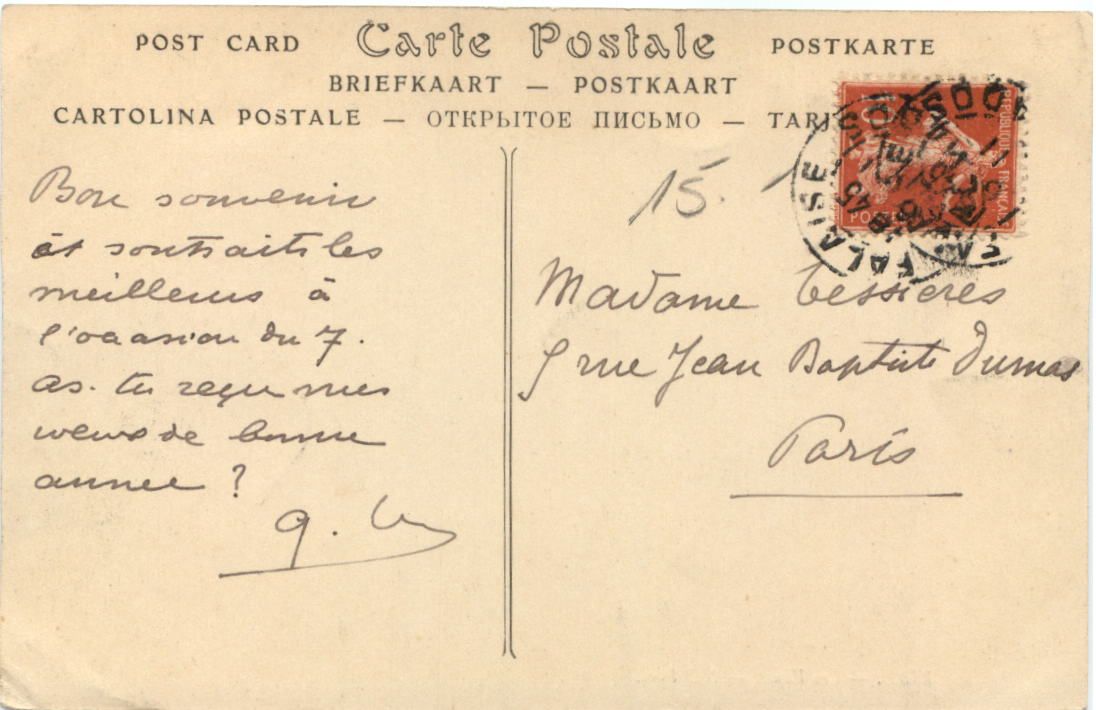 POST CARD Carte Postale POSTKARTE
BRIEFKAART — POSTKAART
CARTOLINA POSTALE — ОТКРЫТОЕ ПИСЬМО —
REPUBLIQUE FRANÇAISE
10
POSTES
FALAISE
15.
Bon souvenir
et souhaits les
meilleurs à
l'occasion du 7.
as-tu reçu mes
vœux de bonne
année ?
Madame Tessieres
5 rue Jean Baptiste Dumas
Paris